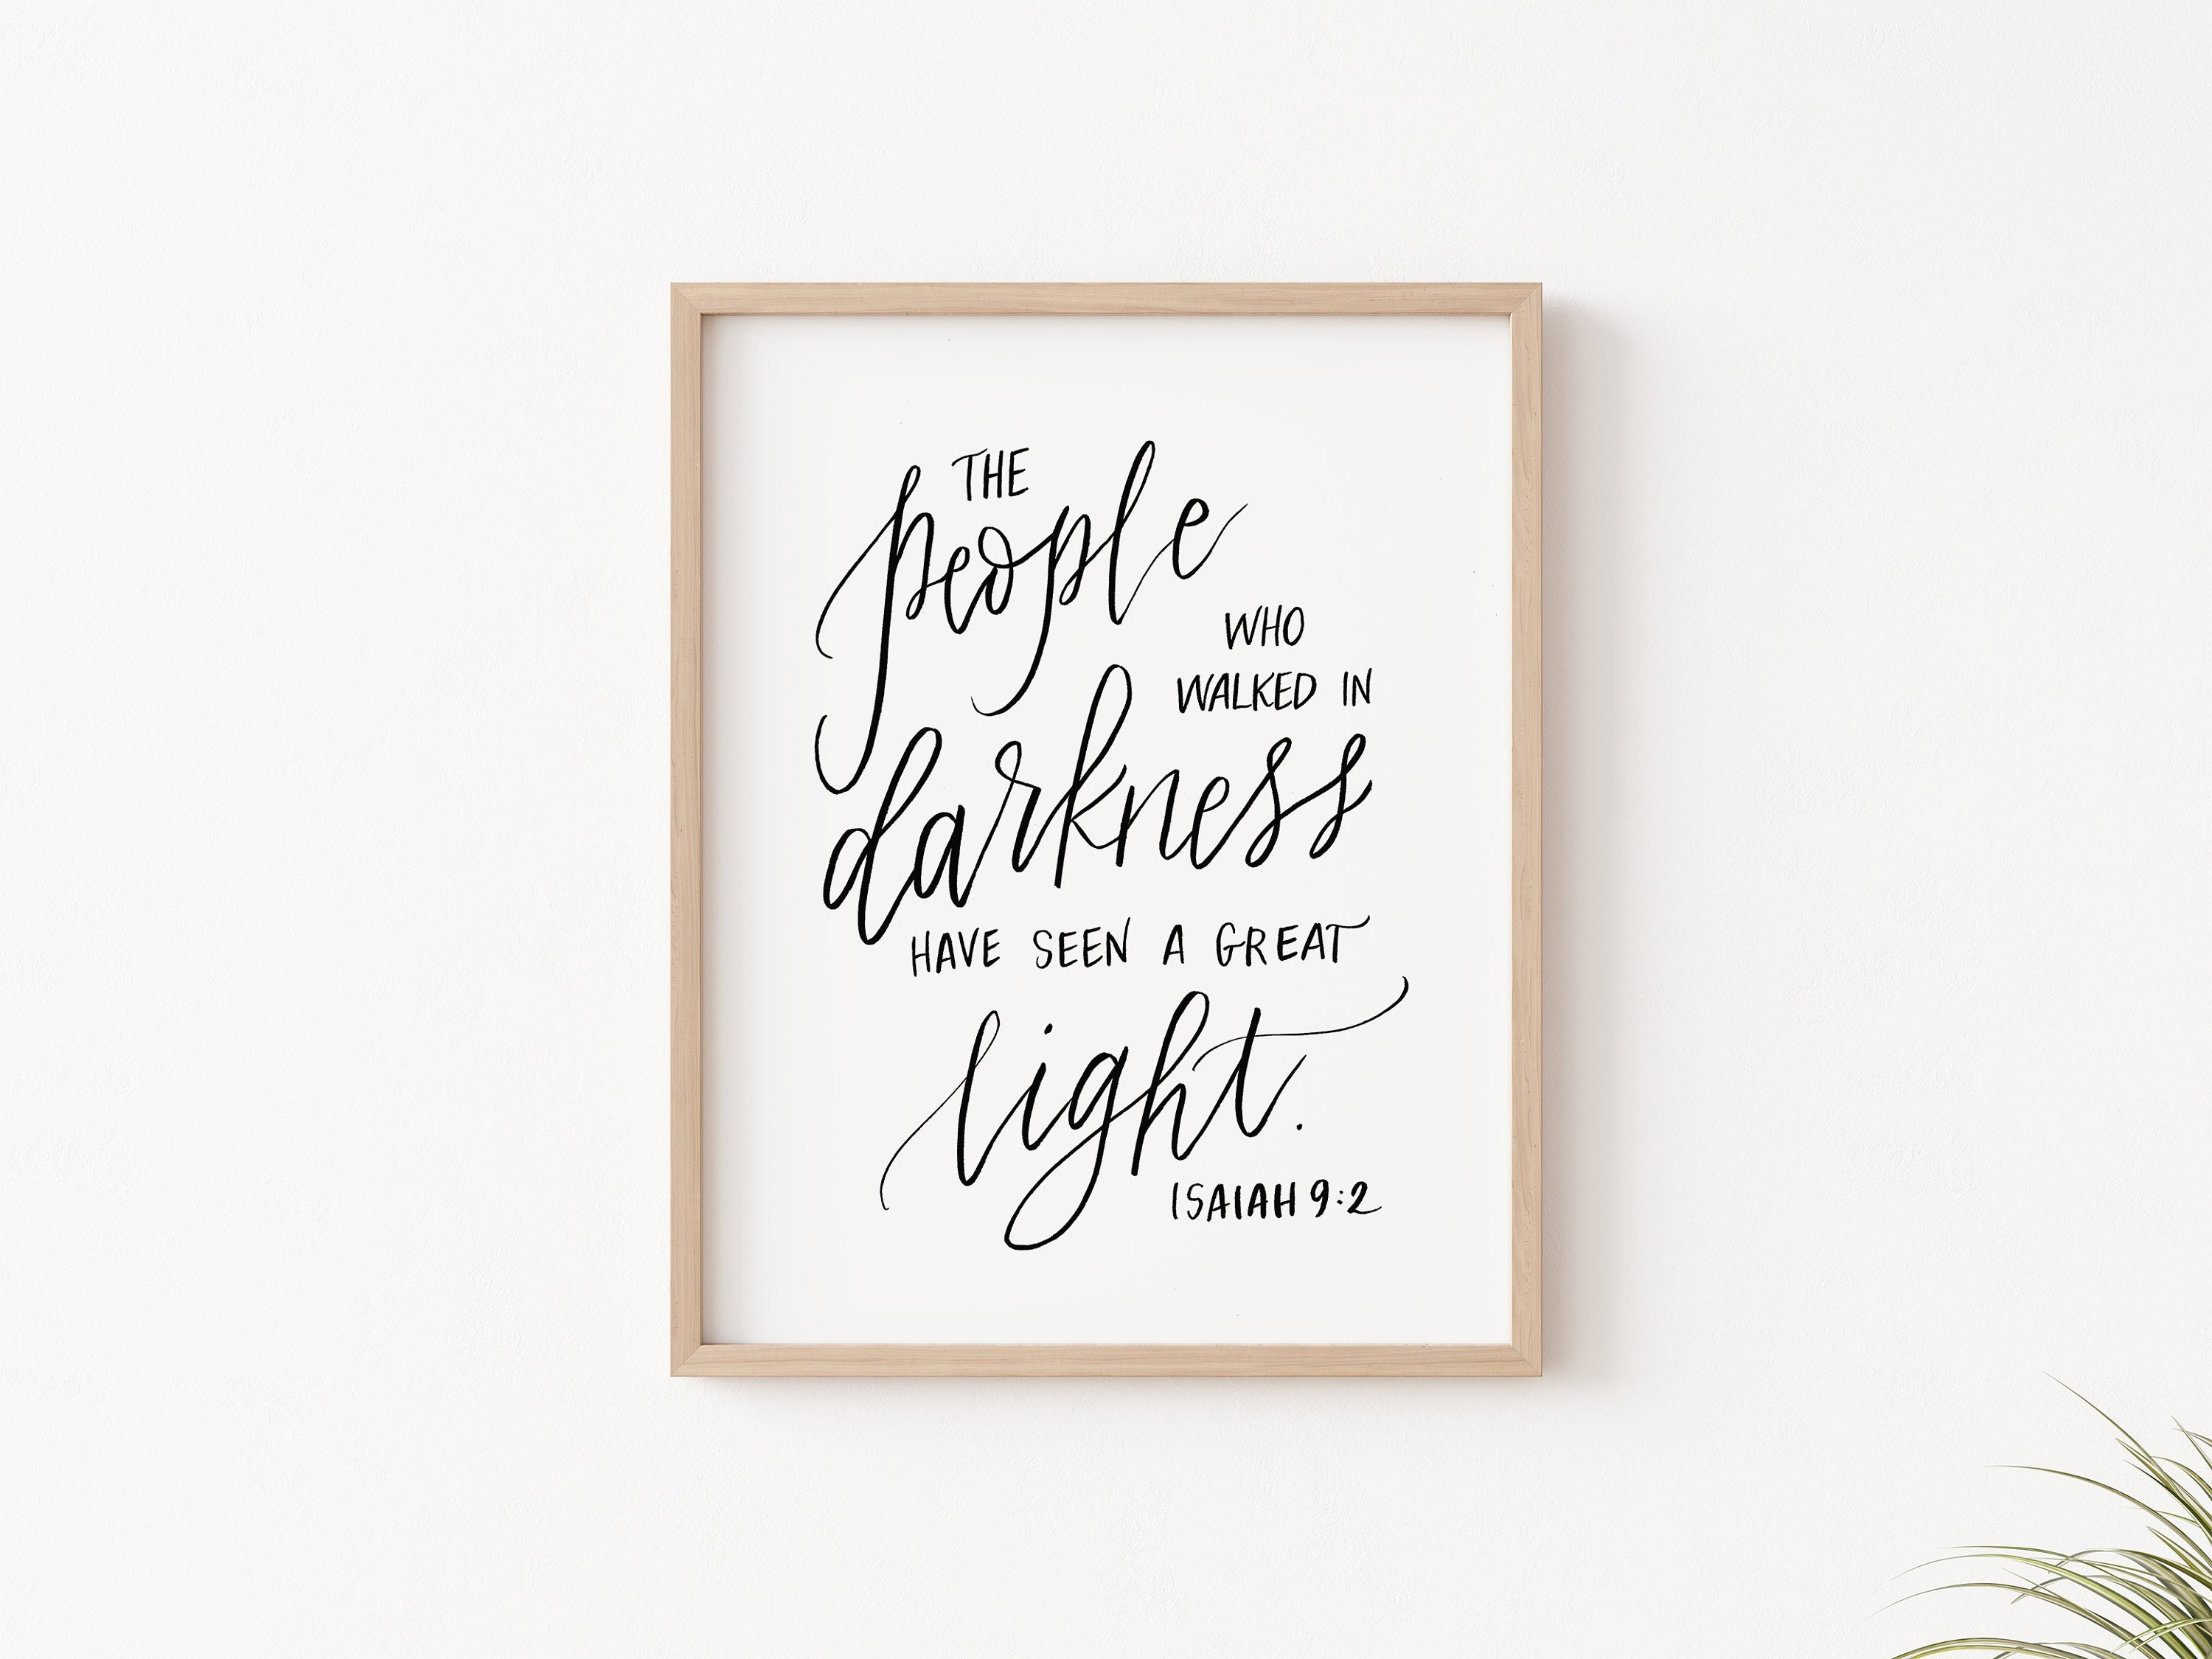 THE
people
WHO
WALKED IN
darkness
HAVE SEEN A GREAT
light.
ISAIAH 9:2